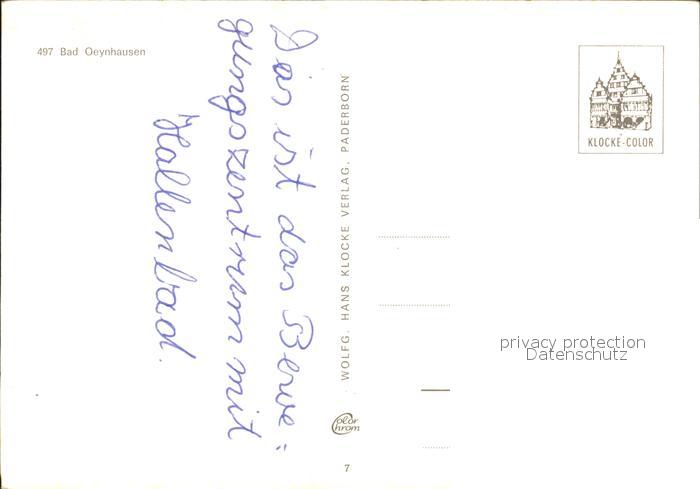 497 Bad Oeynhausen
Das ist das Bewe=
gungszentrum mit
Hallenbad.
WOLFG. HANS KLOCKE VERLAG, PADERBORN
Color
Chrom
7
KLOCKE-COLOR
privacy protection
Datenschutz